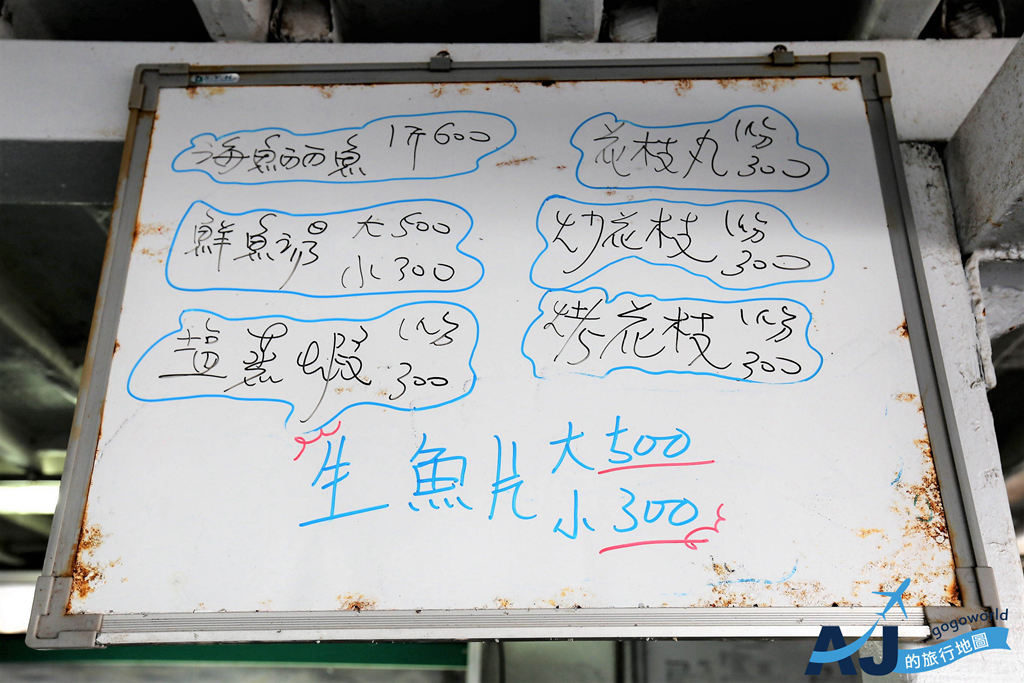 海鱺魚 1斤600
鮮魚湯 大500
小300
塩蒸蝦 1份
300
花枝丸 1份
300
炒花枝 1份
300
烤花枝 1份
300
生魚片 大500
小300
AJ
gogoworld
的旅行地圖